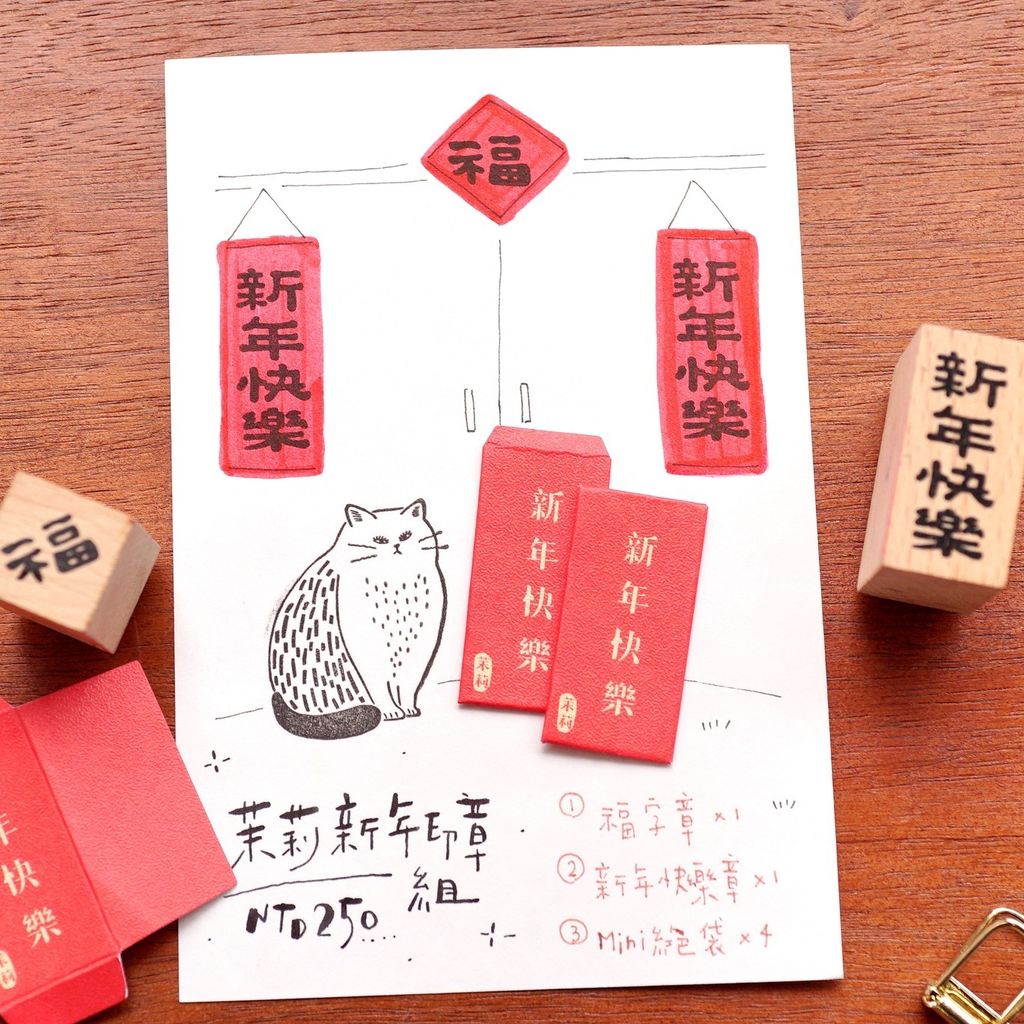 福
新年快樂
新年快樂
福
新年快樂
新年快樂
茉莉
新年快樂
茉莉
年快樂
茉莉
茉莉新年印章
組
NTD250....
① 福字章 x1
② 新年快樂章 x1
③ Mini紅包袋 x4